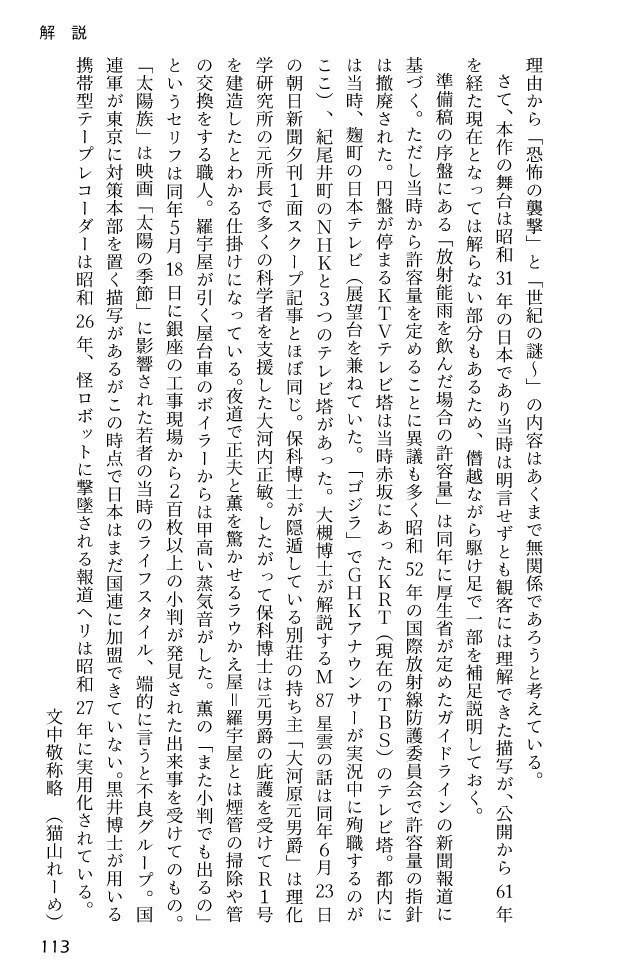 解説
理由から「恐怖の襲撃」と「世紀の謎〜」の内容はあくまで無関係であろうと考えている。
さて、本作の舞台は昭和31年の日本であり当時は明言せずとも観客には理解できた描写が、公開から61年
を経た現在となっては解らない部分もあるため、僭越ながら駆け足で一部を補足説明しておく。
準備稿の序盤にある「放射能雨を飲んだ場合の許容量」は同年に厚生省が定めたガイドラインの新聞報道に
基づく。ただし当時から許容量を定めることに異議も多く昭和52年の国際放射線防護委員会で許容量の指針
は撤廃された。円盤が停まるKTVテレビ塔は当時赤坂にあったKRT（現在のTBS）のテレビ塔。都内に
は当時、麹町の日本テレビ（展望台を兼ねていた。「ゴジラ」でGHKアナウンサーが実況中に殉職するのが
ここ）、紀尾井町のNHKと3つのテレビ塔があった。大槻博士が解説するM87星雲の話は同年6月23日
の朝日新聞夕刊1面スクープ記事とほぼ同じ。保科博士が隠遁している別荘の持ち主「大河原元男爵」は理化
学研究所の元所長で多くの科学者を支援した大河内正敏。したがって保科博士は元男爵の庇護を受けてR1号
を建造したとわかる仕掛けになっている。夜道で正夫と薫を驚かせるラウかえ屋＝羅宇屋とは煙管の掃除や管
の交換をする職人。羅宇屋が引く屋台車のボイラーからは甲高い蒸気音がした。薫の「また小判でも出るの」
というセリフは同年5月18日に銀座の工事現場から2百枚以上の小判が発見された出来事を受けてのもの。
「太陽族」は映画「太陽の季節」に影響された若者の当時のライフスタイル、端的に言うと不良グループ。国
連軍が東京に対策本部を置く描写があるがこの時点で日本はまだ国連に加盟できていない。黒井博士が用いる
携帯型テープレコーダーは昭和26年、怪ロボットに撃墜される報道ヘリは昭和27年に実用化されている。
文中敬称略　（猫山れーめ）
113